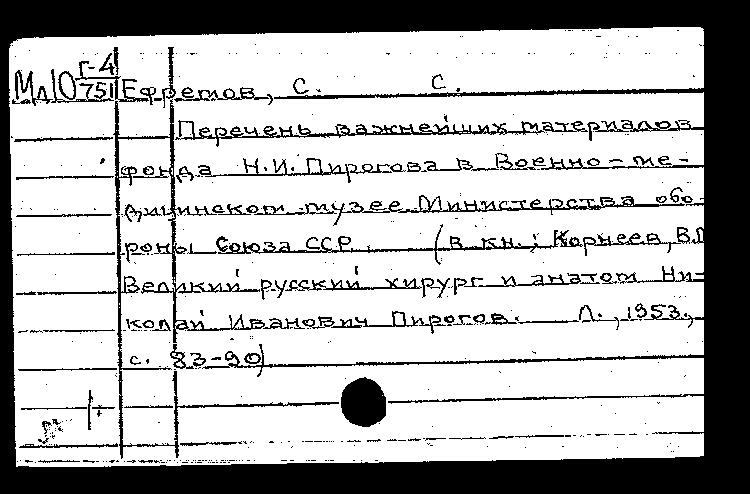 Мл10 Г-4/751 Ефремов, С. С.
Перечень важнейших материалов
фонда Н.И. Пирогова в Военно-ме-
дицинском музее Министерства обо-
роны Союза ССР. (в кн.: Корнеев, В.М
Великий русский хирург и анатом Ни-
колай Иванович Пирогов. Л., 1953.,
с. 83-90)